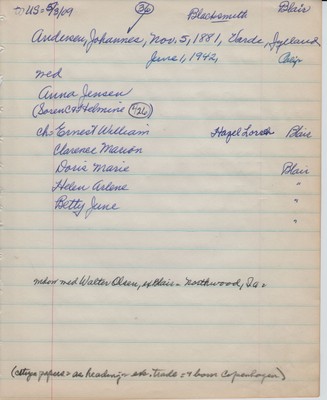 to US = 5/3/09 (36) Blacksmith Blair
Andersen, Johannes, Nov. 5, 1881, Varde, Jylland
June 1, 1942,
med
Anna Jensen
(Soren C & Helmine (426))
ch = Ernest William Hazel Blair
Clarence Marion
Doris Marie Blair
Helen Arlene "
Betty June "
med Walter Olsen, = Northwood, Ia =
papers = as heading = trade = & born Copenhagen)